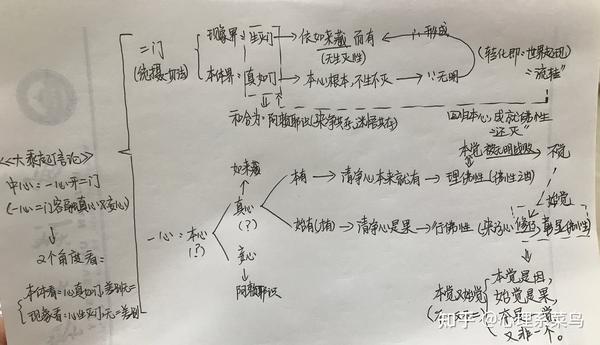 二门
(统摄一切法)
现象界：生灭门 → 依如来藏而有
(无生灭性)
形成
本体界：真如门 → 本心根本，不生不灭 → 无明
(转化即：世界起现)
"流转"
和合为：阿赖耶识(染净共存，迷悟共存)
回归本心成就佛性
"还灭"
《大乘起信论》
中心：一心开二门
(一心=二门容融真心又妄心)
2个角度看：
本体看：心真如门，差别无=
现象看：心生灭门，无=差别
一心：本心
(?)
如来藏
真心
(?)
妄心
阿赖耶识
本有 → 清净心本来就有 → 理佛性(佛性之因)
始有(才有) → 清净心是果 → 行佛性
本觉 被无明 不觉
始觉
本觉又始觉
本觉是因，
始觉是果，
本是一觉
又非一个。
知乎 @心理系菜鸟